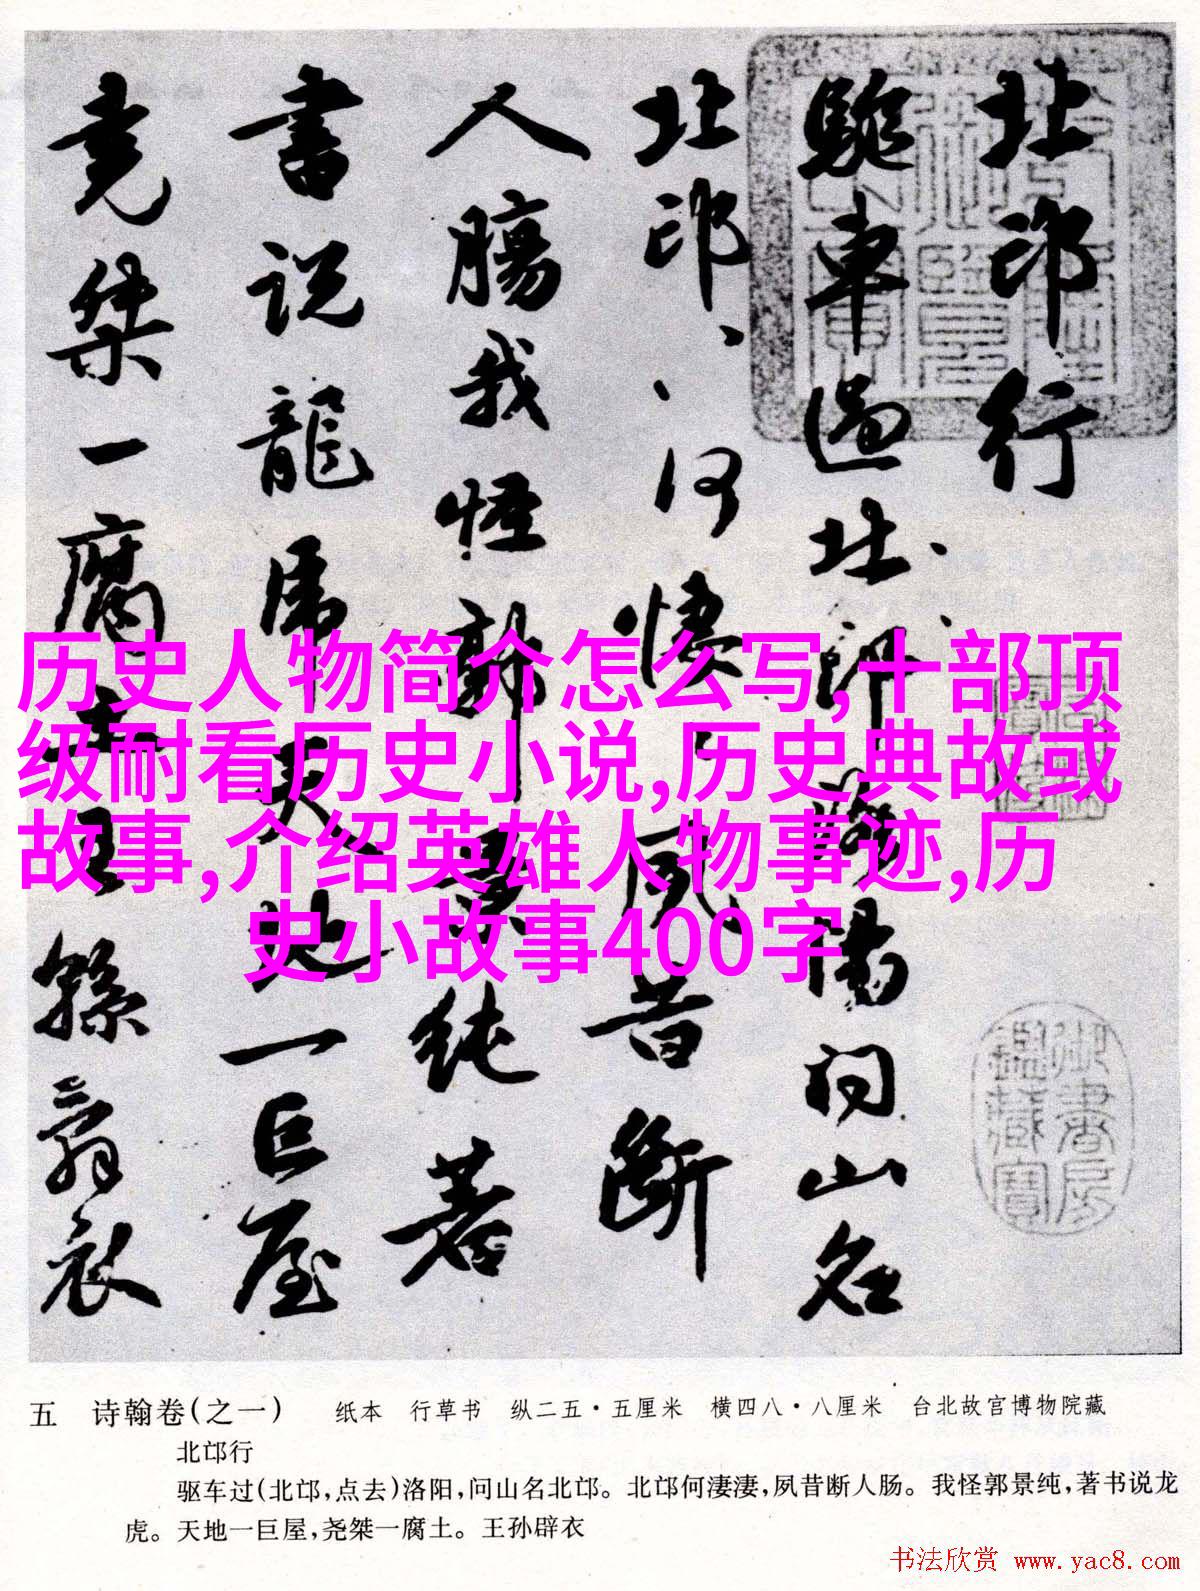 北邙行
駈車過北邙洛陽問山名
北邙、、何悽、夙昔斷
人腸我怪郭景純著
書说龍虎天地一巨屋
尭桀一腐土王孫辟衣
御書房鑑藏寶
历史人物简介怎么写,十部顶
级耐看历史小说,历史典故或
故事,介绍英雄人物事迹,历
史小故事400字
五 诗翰卷(之一) 纸本 行草书 纵二五·五厘米 横四八·八厘米 台北故宫博物院藏
北邙行
驱车过(北邙,点去)洛阳,问山名北邙。北邙何淒淒,夙昔断人肠。我怪郭景纯,著书说龙
虎。天地一巨屋,尧桀一腐土。王孙辟衣
书法欣赏 www.yac8.com